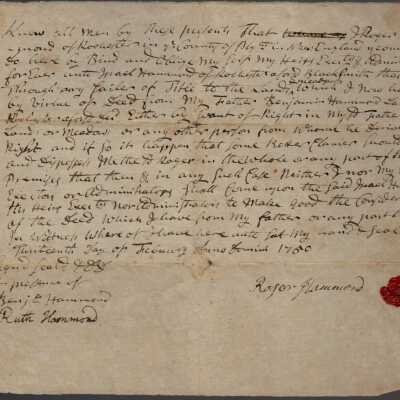 Know all Men by these presents That I Roger
Hammond of Rochester in ye County of Plyo in New England yeoma
do here by Bind and oblige My Self My Heirs Execurs & Admin
for Ever unto Hammond of Rochester aforsd Blacksmith that
through any failer of Title to the Land & meadow Which I now ho
by Virtue of Deed from My Father Benjamin Hammond La
Rochester aforesd Either in want of Right in My sd Father
Land or Meadow or any other person from Whome he Derive
Right and if so it happen that some Better Claimer should
and Disposess Me the sd Roger in the Whole or any part of the
Premises that then & in any Such Case Neither I nor My
Execrs or Administrators Shall Come upon the Said H
His Heirs Execrs nor Administrators to Make good the
of the Deed Which I have from My Father or any part
In Witness Where of I have here unto Set My hand & Seal
Thirteenth Day of Februay Anno Domini
Signd Seald & Dd
in presence of
Benja Hammond
Ruth Hammond
Roger Hammond